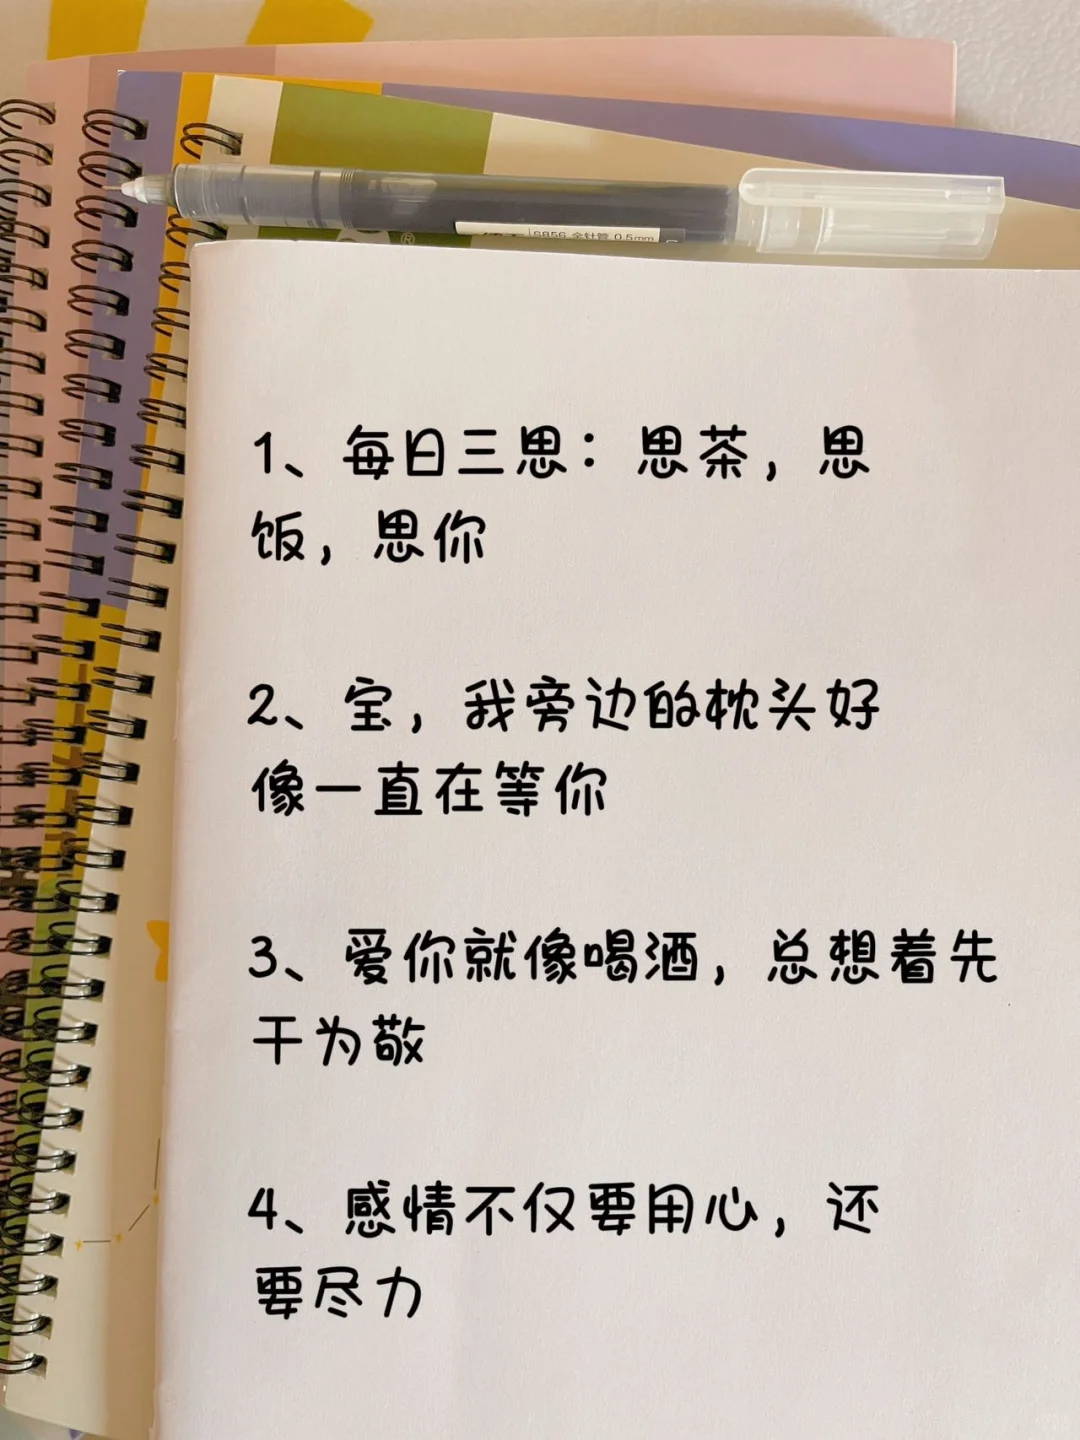 S856 全针管 0.5mm
®
1、每日三思：思茶，思
饭，思你
2、宝，我旁边的枕头好
像一直在等你
3、爱你就像喝酒，总想着先
干为敬
4、感情不仅要用心，还
要尽力